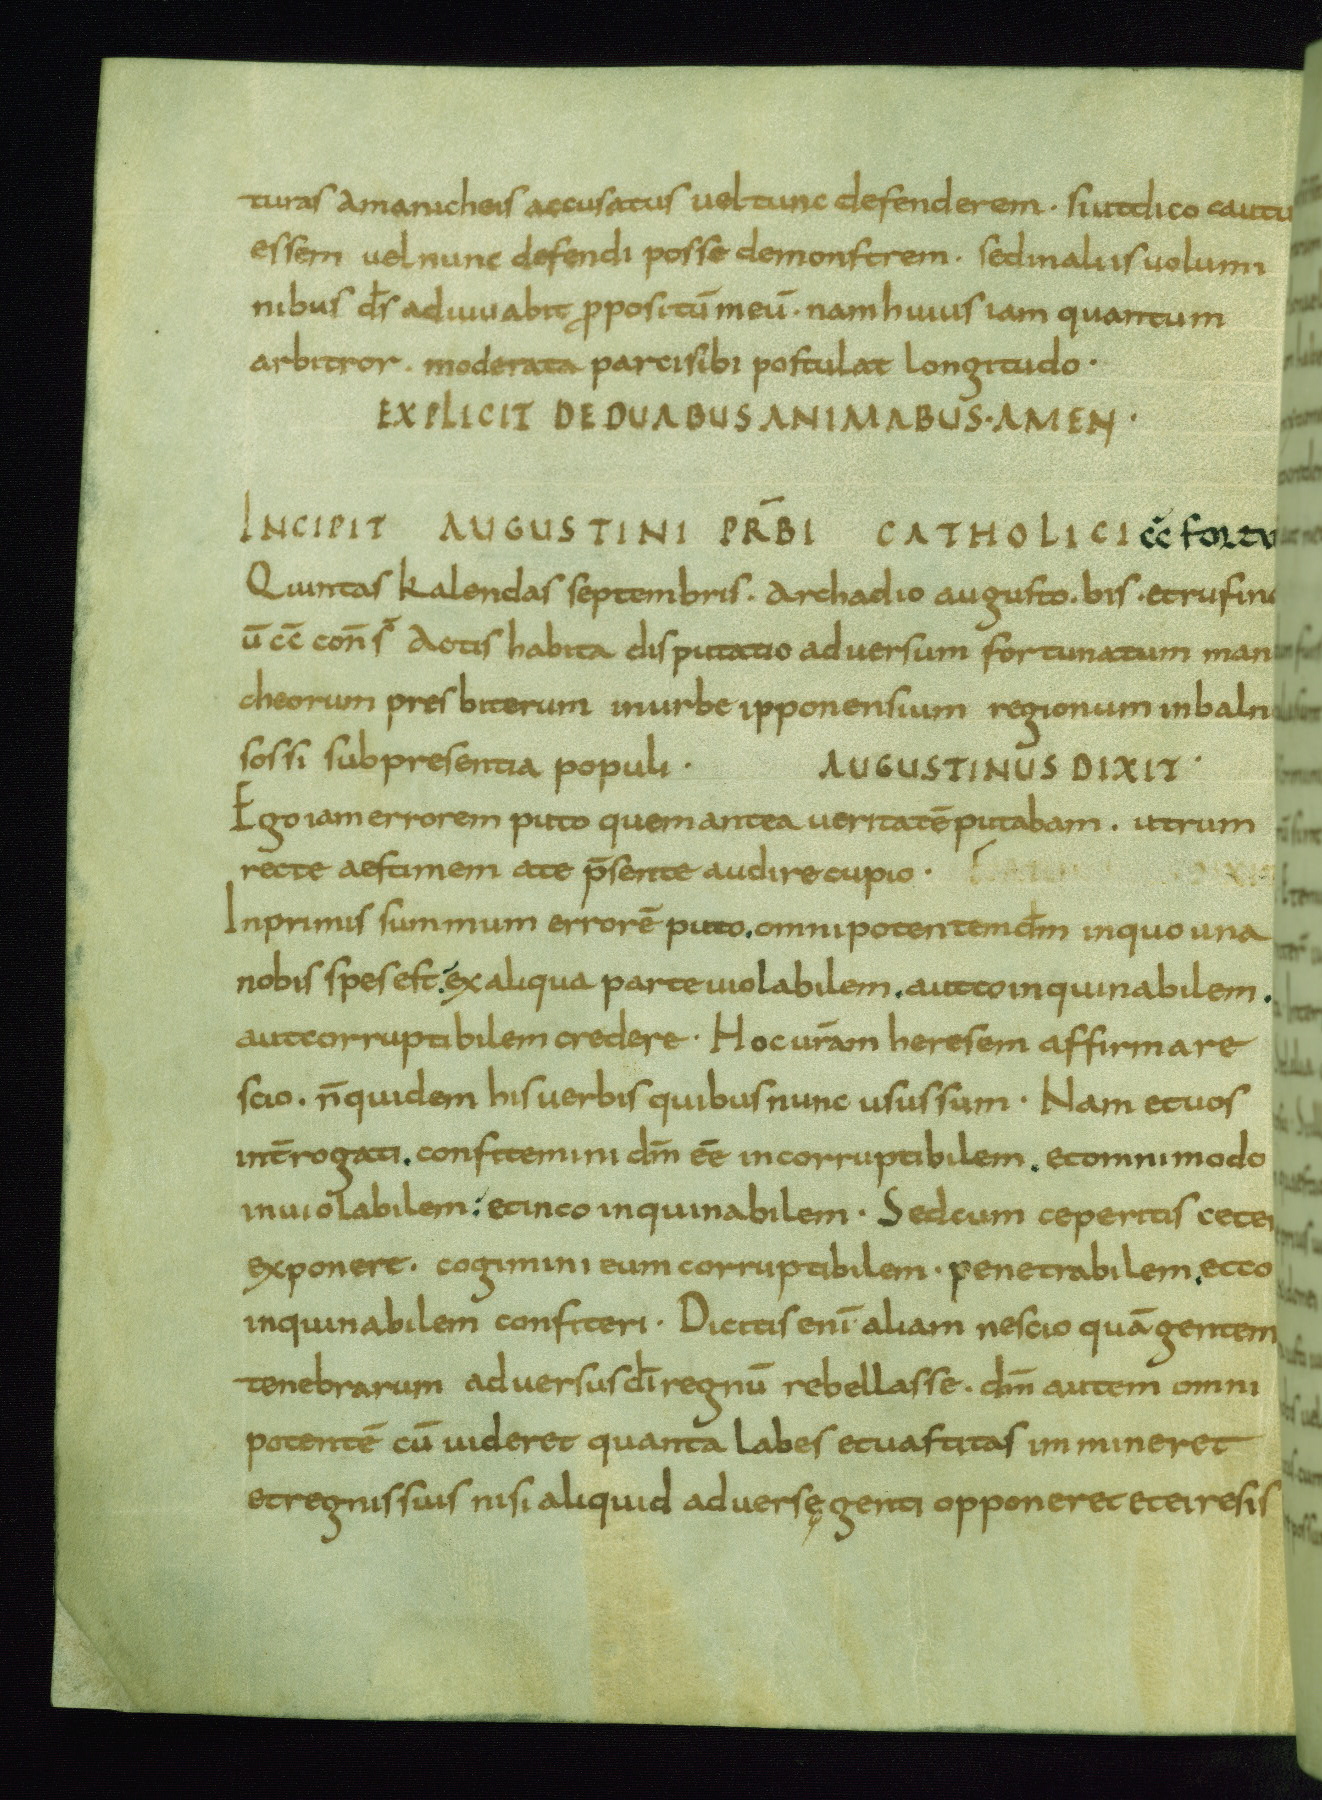 turas amanicheis accusatus uel tunc defenderem· siutdico cautu
essem uel nunc defendi posse demonstrem· sed in aliis uolumi
nibus d̄s adiuuabit ꝓpositū meū· nam huius iam quantum
arbitror· moderata parci sibi postulat longitudo·
EXPLICIT DE DUABUS ANIMABUS· AMEN·
INCIPIT AUGUSTINI PR̄BI CATHOLICI cc̄ fortu
Quintas kalendas septembris· Archadio augusto· bis· et rufino
ū cc̄ con̄s Actis habita disputatio aduersum fortunatum man
cheorum presbiterum in urbe ipponensium regionum in baln
sossi sub presentia populi· AUGUSTINUS DIXIT·
Ego iam errorem puto quem antea ueritatē putabam· utrum
recte aestimem a te p̄sente audire cupio·
Inprimis summum errorē puto. omnipotentem dm̄ in quo una
nobis spes est. ex aliqua parte uiolabilem. aut coinquinabilem.
aut corruptibilem credere· Hoc ur̄am heresem affirmare
scio. n̄ quidem his uerbis quibus nunc usus sum· Nam et uos
int̄rogati. confitemini dm̄ ēe incorruptibilem. et omnimodo
inuiolabilem: et inco inquinabilem· Sed cum ceperitis cete
exponere· cogimini eum corruptibilem· penetrabilem. et co
inquinabilem confiteri· Dicitis enī aliam nescio quā gentem
tenebrarum aduersus dī regnū rebellasse· dm̄ autem omni
potentē cū uideret quanta labes et uastitas immineret
et regnis suis nisi aliquid aduersę genti opponeret et ei resis